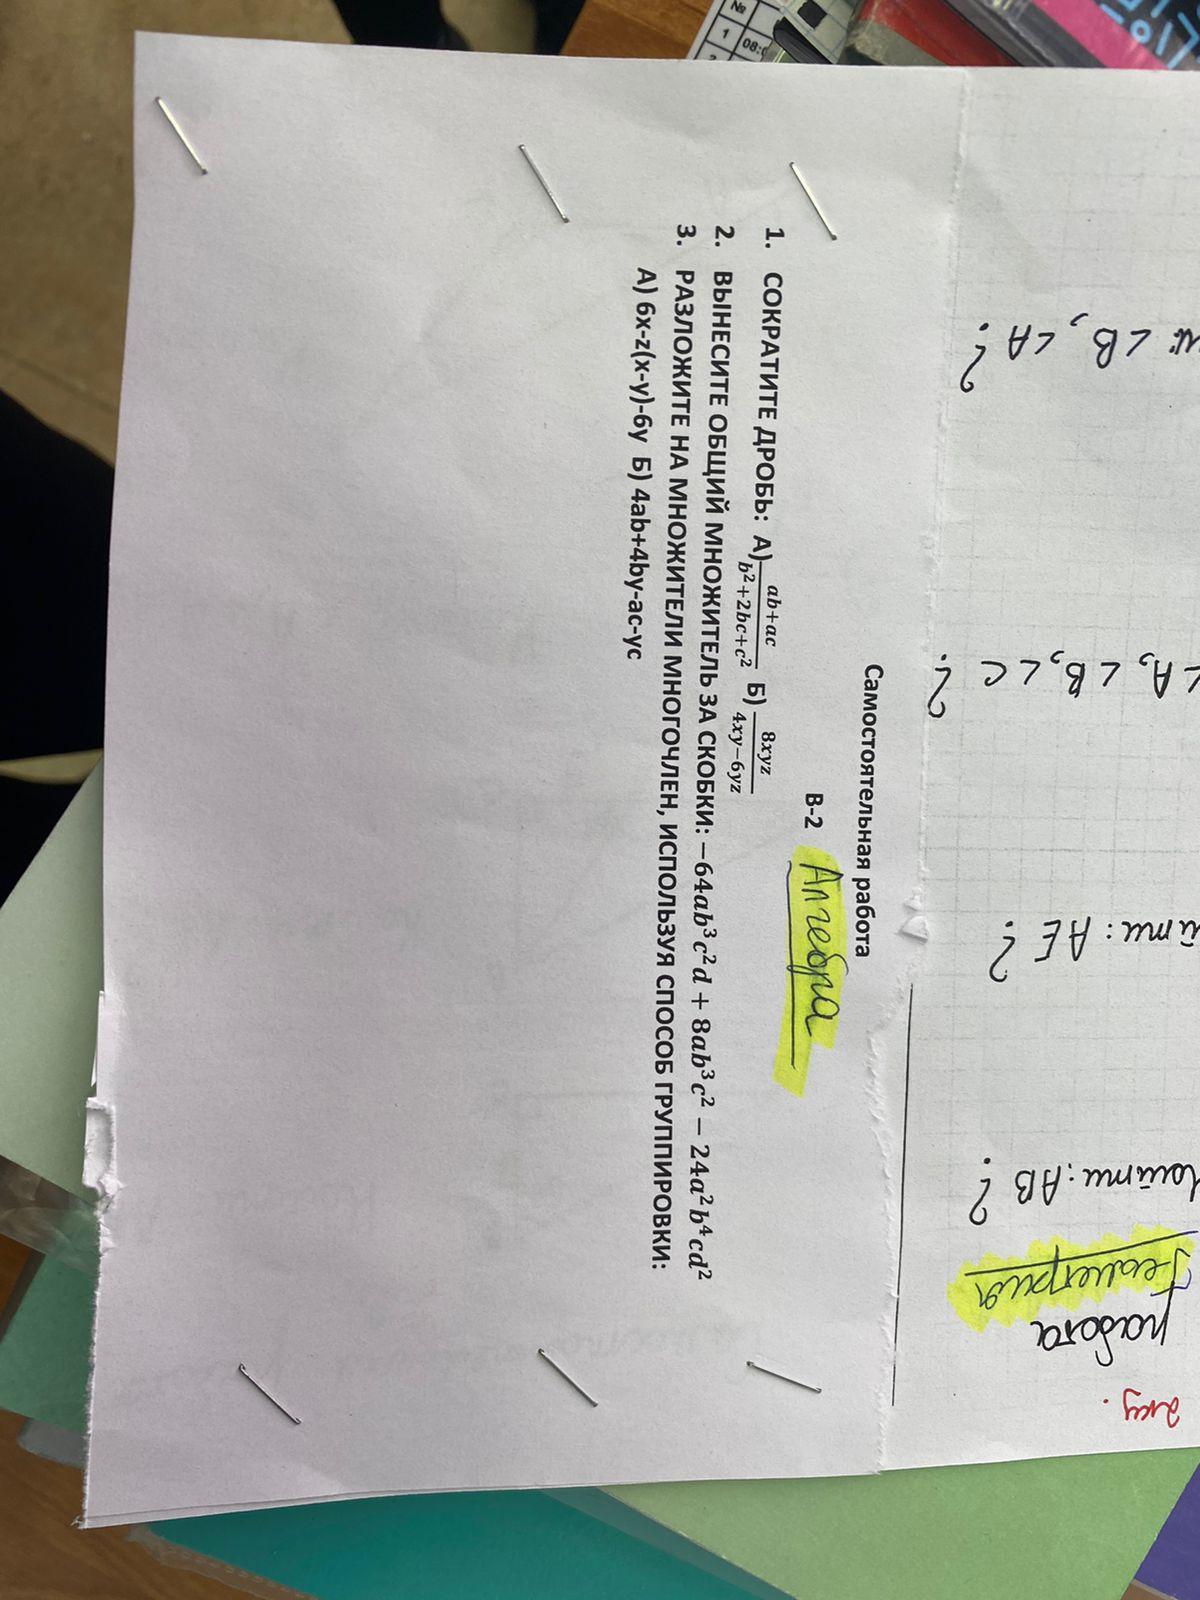 Самостоятельная работа
В-2 Алгебра
1. СОКРАТИТЕ ДРОБЬ: А) \frac{ab+ac}{b^2+2bc+c^2} Б) \frac{8xyz}{4xy-6yz}
2. ВЫНЕСИТЕ ОБЩИЙ МНОЖИТЕЛЬ ЗА СКОБКИ: −64ab³c²d + 8ab³c² − 24a²b⁴cd²
3. РАЗЛОЖИТЕ НА МНОЖИТЕЛИ МНОГОЧЛЕН, ИСПОЛЬЗУЯ СПОСОБ ГРУППИРОВКИ:
А) 6x-z(x-y)-6y Б) 4ab+4by-ac-yc
работа
Геометрия
Найти: AB ?
AE ?
∠A, ∠B, ∠C ?
∠B, ∠A ?
№
1 08:0